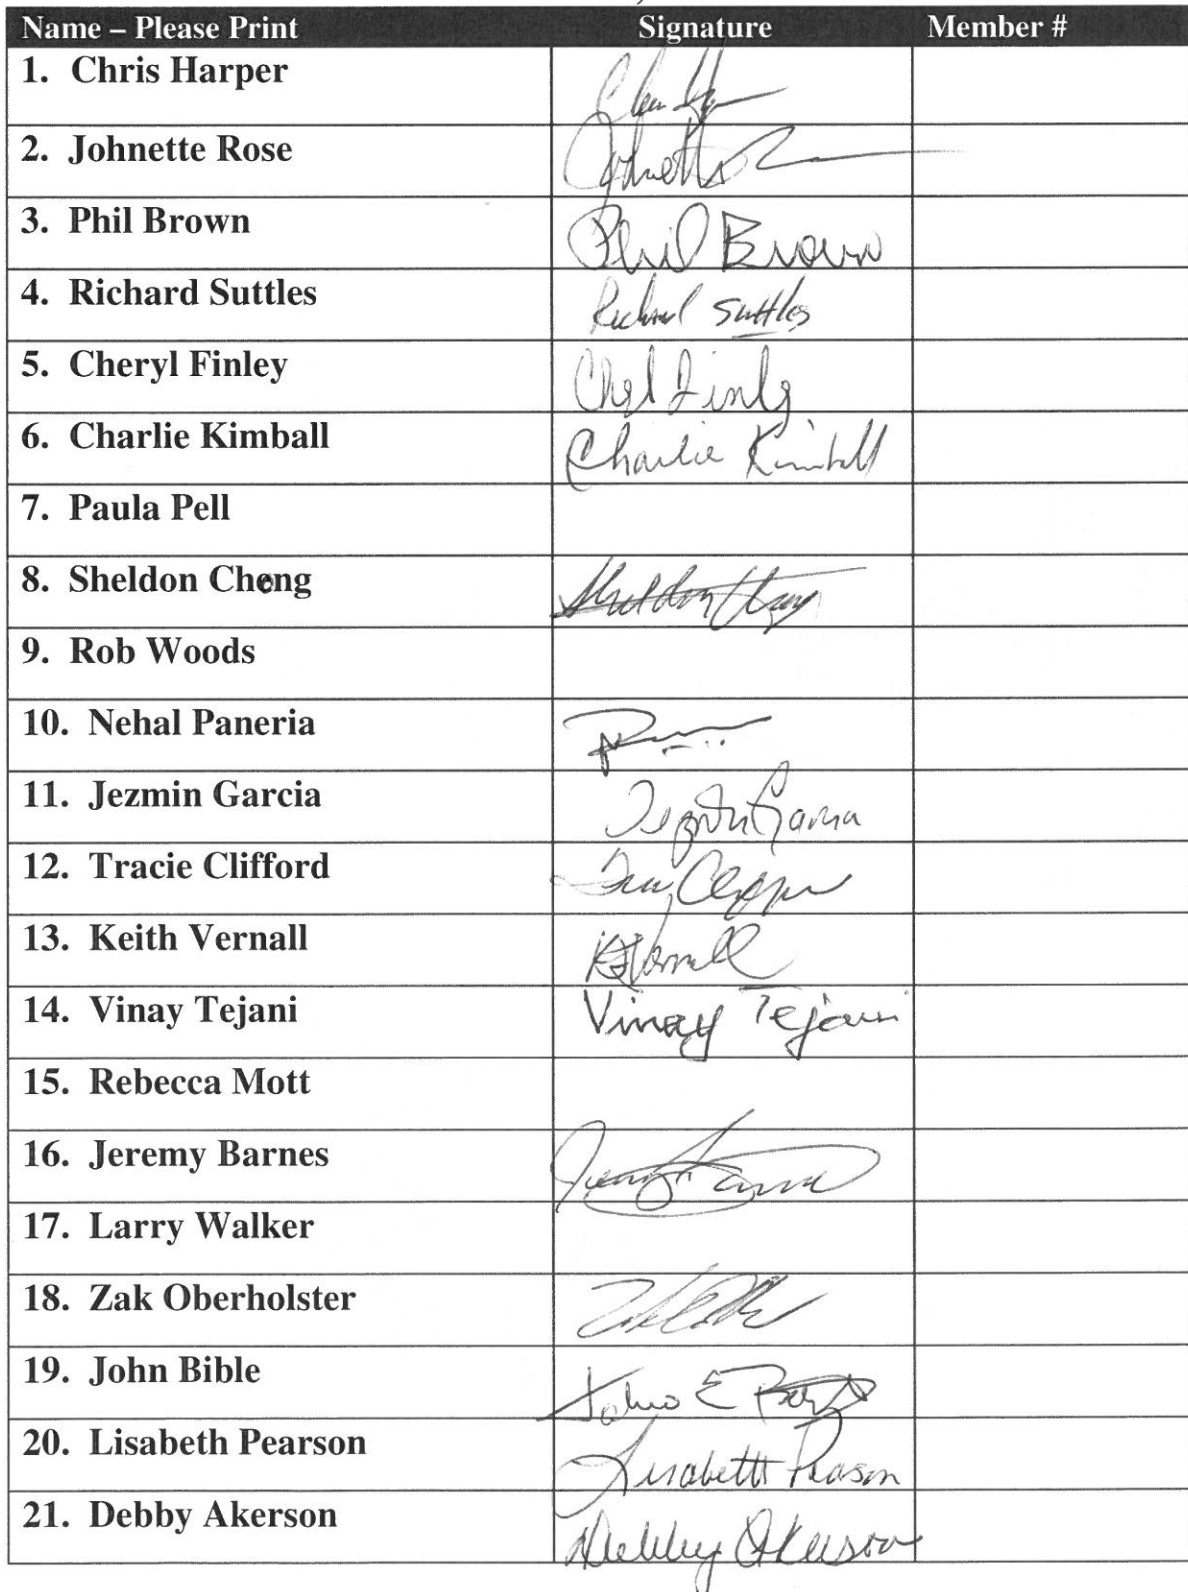 Name – Please Print Signature Member #
1. Chris Harper
2. Johnette Rose Johnette
3. Phil Brown Phil Brown
4. Richard Suttles Richard Suttles
5. Cheryl Finley
6. Charlie Kimball Charlie Kimball
7. Paula Pell
8. Sheldon Cheng Sheldon
9. Rob Woods
10. Nehal Paneria
11. Jezmin Garcia Garcia
12. Tracie Clifford
13. Keith Vernall
14. Vinay Tejani Vinay Tejani
15. Rebecca Mott
16. Jeremy Barnes
17. Larry Walker
18. Zak Oberholster
19. John Bible John E
20. Lisabeth Pearson Lisabeth Pearson
21. Debby Akerson Debby Akerson